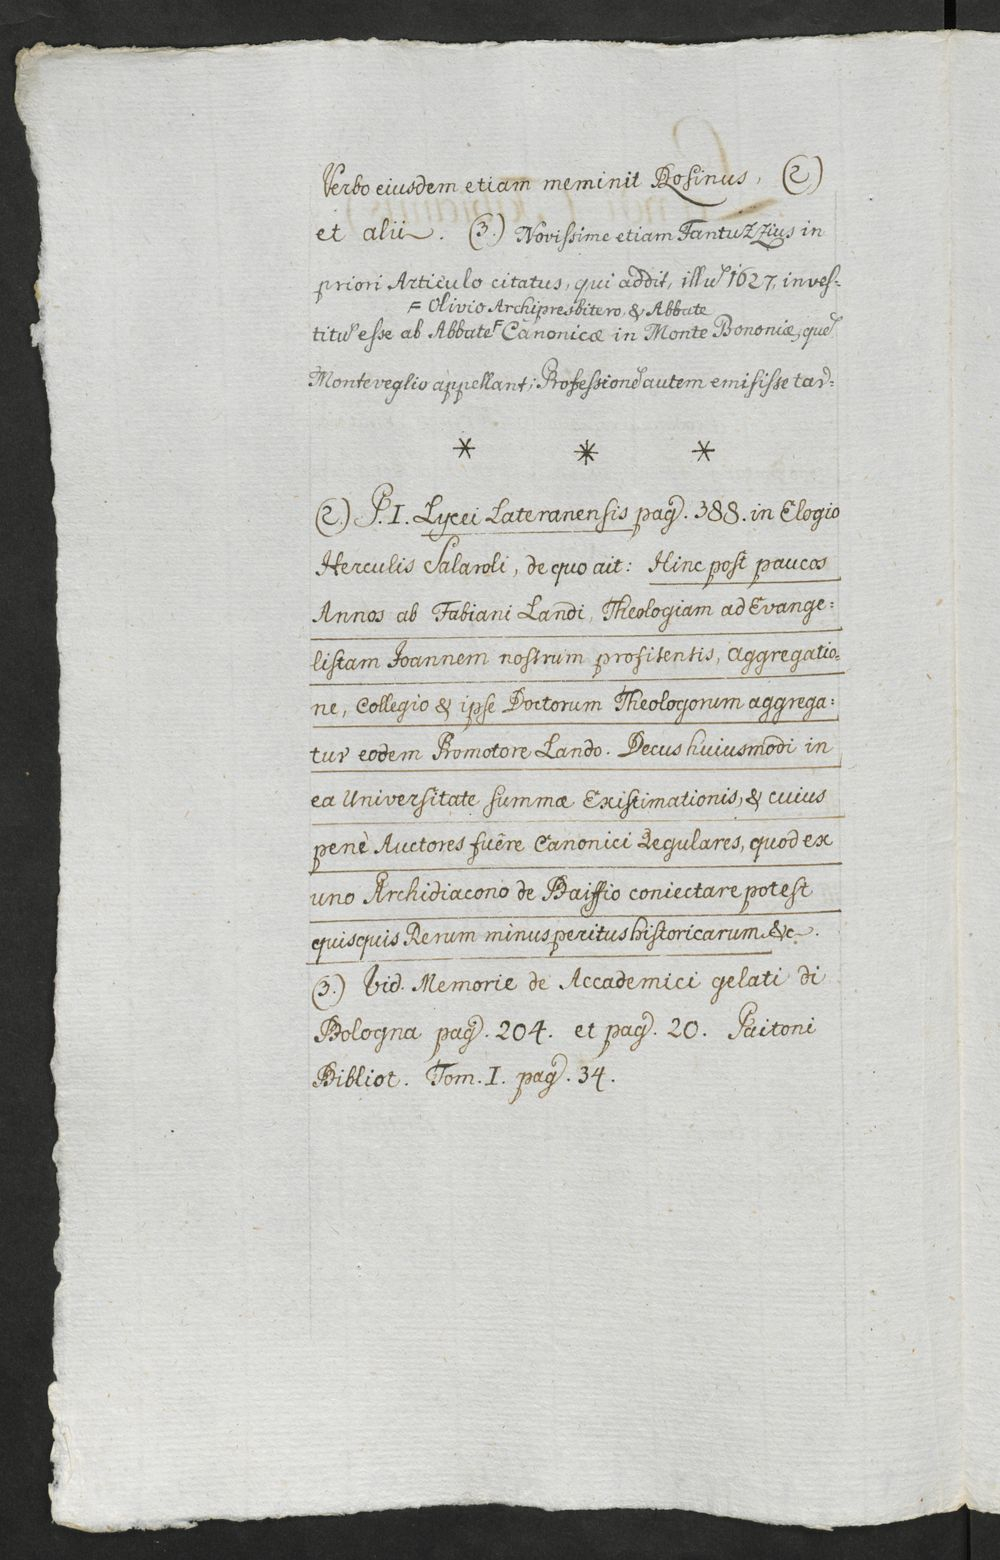 Verbo eiusdem etiam meminit Rosinus, (2.)
et alii. (3.) Novissime etiam Fantuzzius in
priori Articulo citatus, qui addit, illũ 1627, inves-
= Olivio Archipresbitero, & Abbate
titũ esse ab Abbate Canonicæ in Monte Bononiæ, quẽ
Monteveglio appellant; Professionẽ autem emisisse tar=
* * *
(2.) P. I. Lycei Lateranensis pag. 388. in Elogio
Herculis Salaroli, de quo ait: Hinc post paucos
Annos ab Fabiani Landi, Theologiam ad Evange=
listam Joannem nostrum profitentis, aggregatio=
ne, Collegio & ipse Doctorum Theologorum aggrega=
tur eodem Promotore Lando. Decus huiusmodi in
ea Universitate summæ Existimationis, & cuius
penè Auctores fuẽre Canonici Regulares, quod ex
uno Archidiacono de Baiffio coniectare potest
quisquis Rerum minus peritus historicarum &c.
(3.) Vid. Memorie de Accademici gelati di
Bologna pag. 204. et pag. 20. Paitoni
Bibliot. Tom. I. pag. 34.